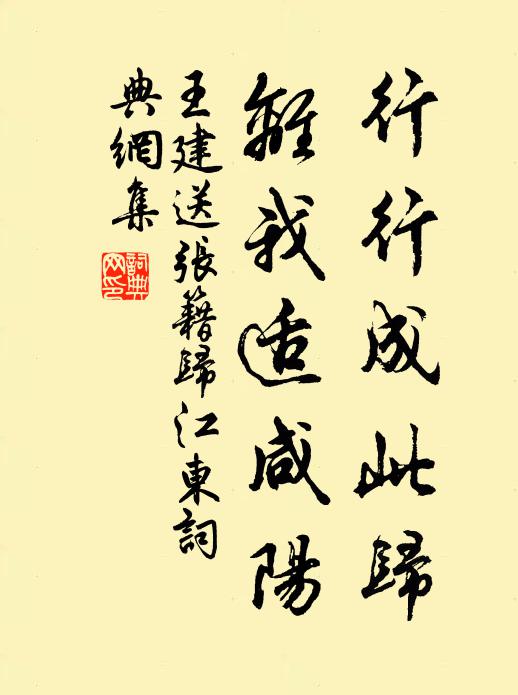 行行成此歸
離我适咸陽
王建送張籍歸江東詞
典網集
詞典網印